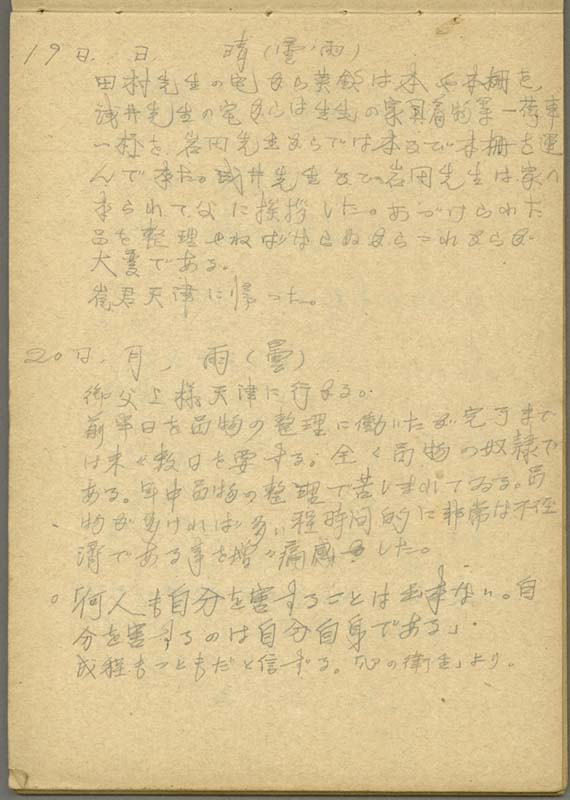 19日、日、 晴(曇、雨)
田村先生の宅から英鉄は本や本棚を、
浅井先生の宅からは先生の家具着物等一荷車
一極を、岩田先生からでは本まで本棚を運
んで来た。浅井先生までの岩田先生は家へ
来られて父に挨拶した。あづけられた
品を整理せねばならぬからこれからが
大変である。
崔君天津に帰った。
20日、月、 雨(曇)
御父上様天津に行かる。
前半日を品物の整理に働いたが完了まで
は未だ数日を要する。全く品物の奴隷で
ある。年中品物の整理で苦しまれてゐる。品
物が多ければ多い程時間的に非常は不経
済である事を増々痛感した。
○「何人も自分を害することは出来ない。自
分を害するのは自分自身である」
成程もっともだと信ずる。「心の衛生」より。